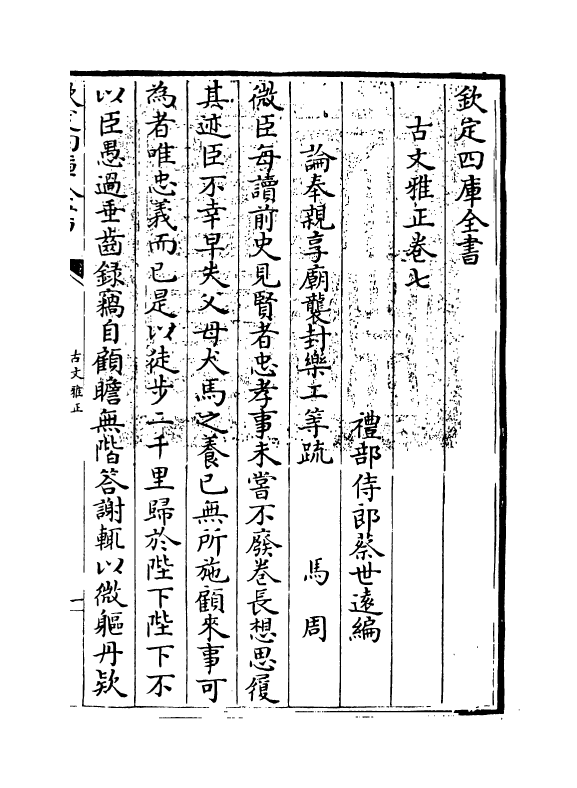 欽定四庫全書
古文雅正卷七
禮部侍郎蔡世遠編
論奉親享廟襲封樂工等疏 馬周
微臣每讀前史見賢者忠孝事未嘗不廢卷長想思履
其迹臣不幸早失父母犬馬之養已無所施顧來事可
為者唯忠義而已是以徒步二千里歸於陛下陛下不
以臣愚過垂齒錄竊自顧瞻無階答謝輒以微軀丹欵
古文雅正
一